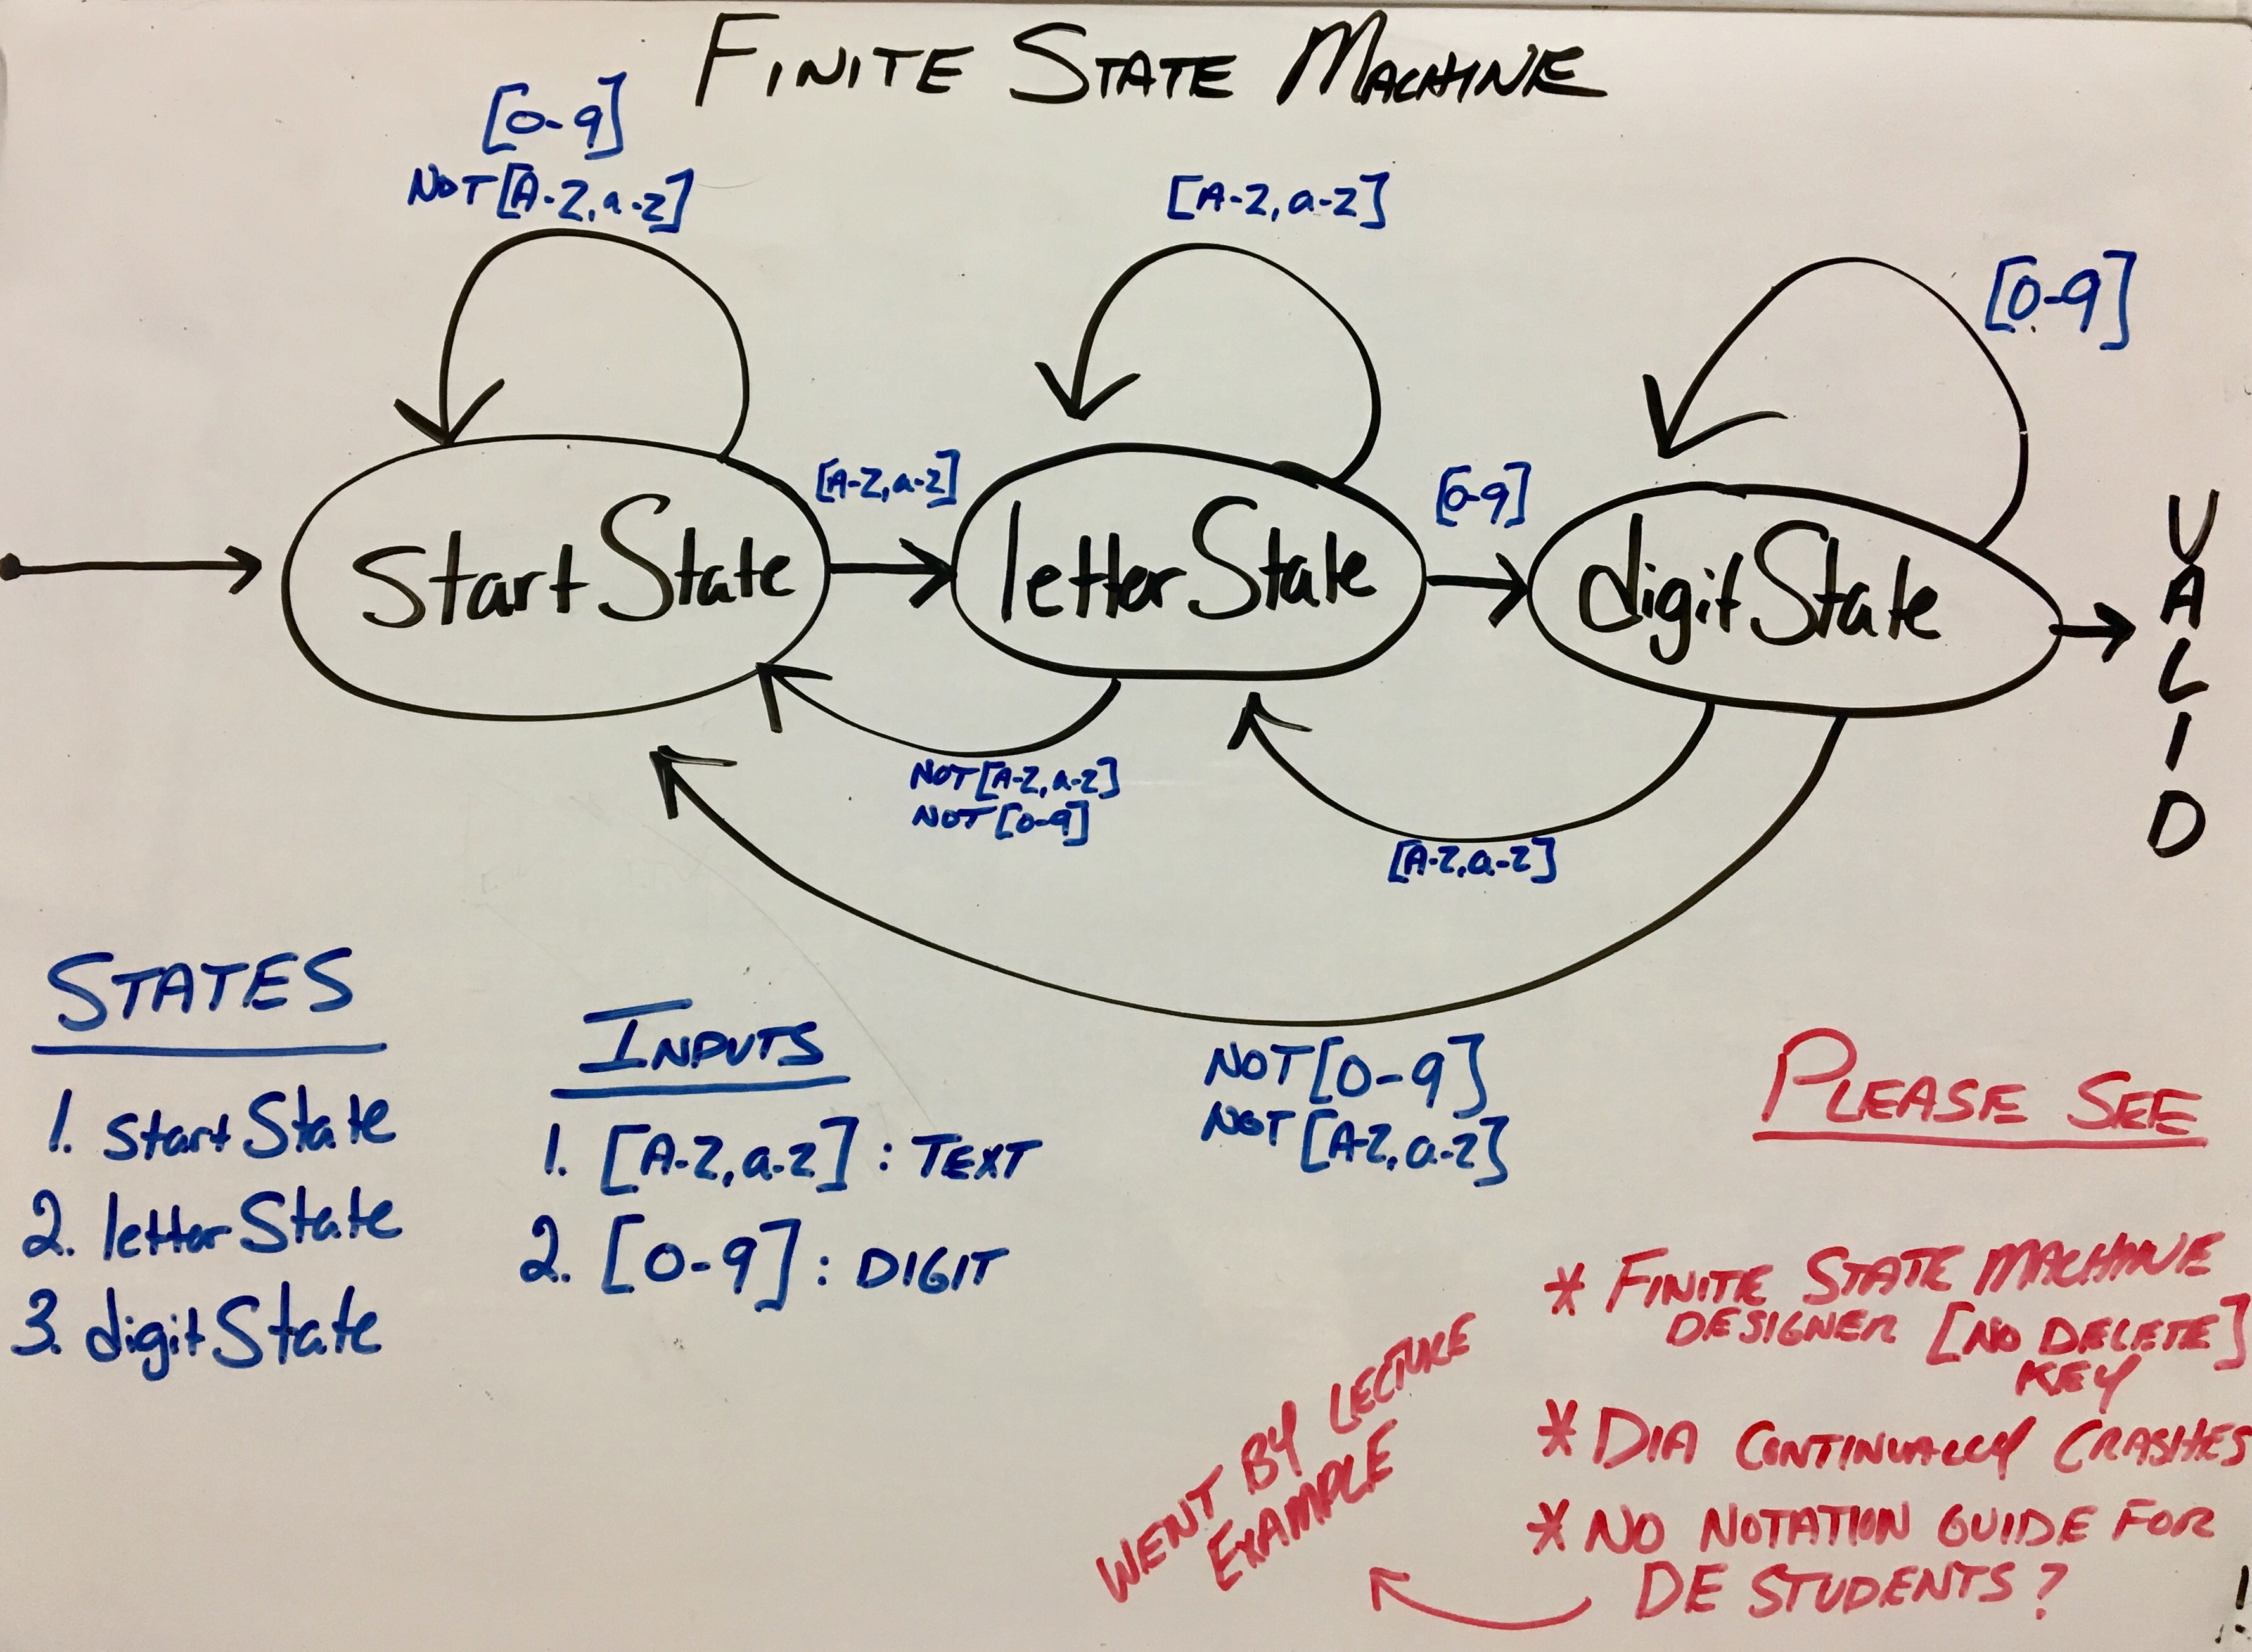 FINITE STATE MACHINE
[0-9]
NOT[A-Z,a-z]
[A-Z,a-z]
[0-9]
[A-Z,a-z]
[0-9]
startState
letterState
digitState
VALID
NOT[A-Z,a-z]
NOT[0-9]
[A-Z,a-z]
NOT[0-9]
NOT[A-Z,a-z]
STATES
1. startState
2. letterState
3. digitState
INPUTS
1. [A-Z,a-z] : TEXT
2. [0-9] : DIGIT
PLEASE SEE
* FINITE STATE MACHINE
DESIGNER [NO DELETE]
KEY
* DIA CONTINUALLY CRASHES
* NO NOTATION GUIDE FOR
DE STUDENTS?
WENT BY LECTURE
EXAMPLE